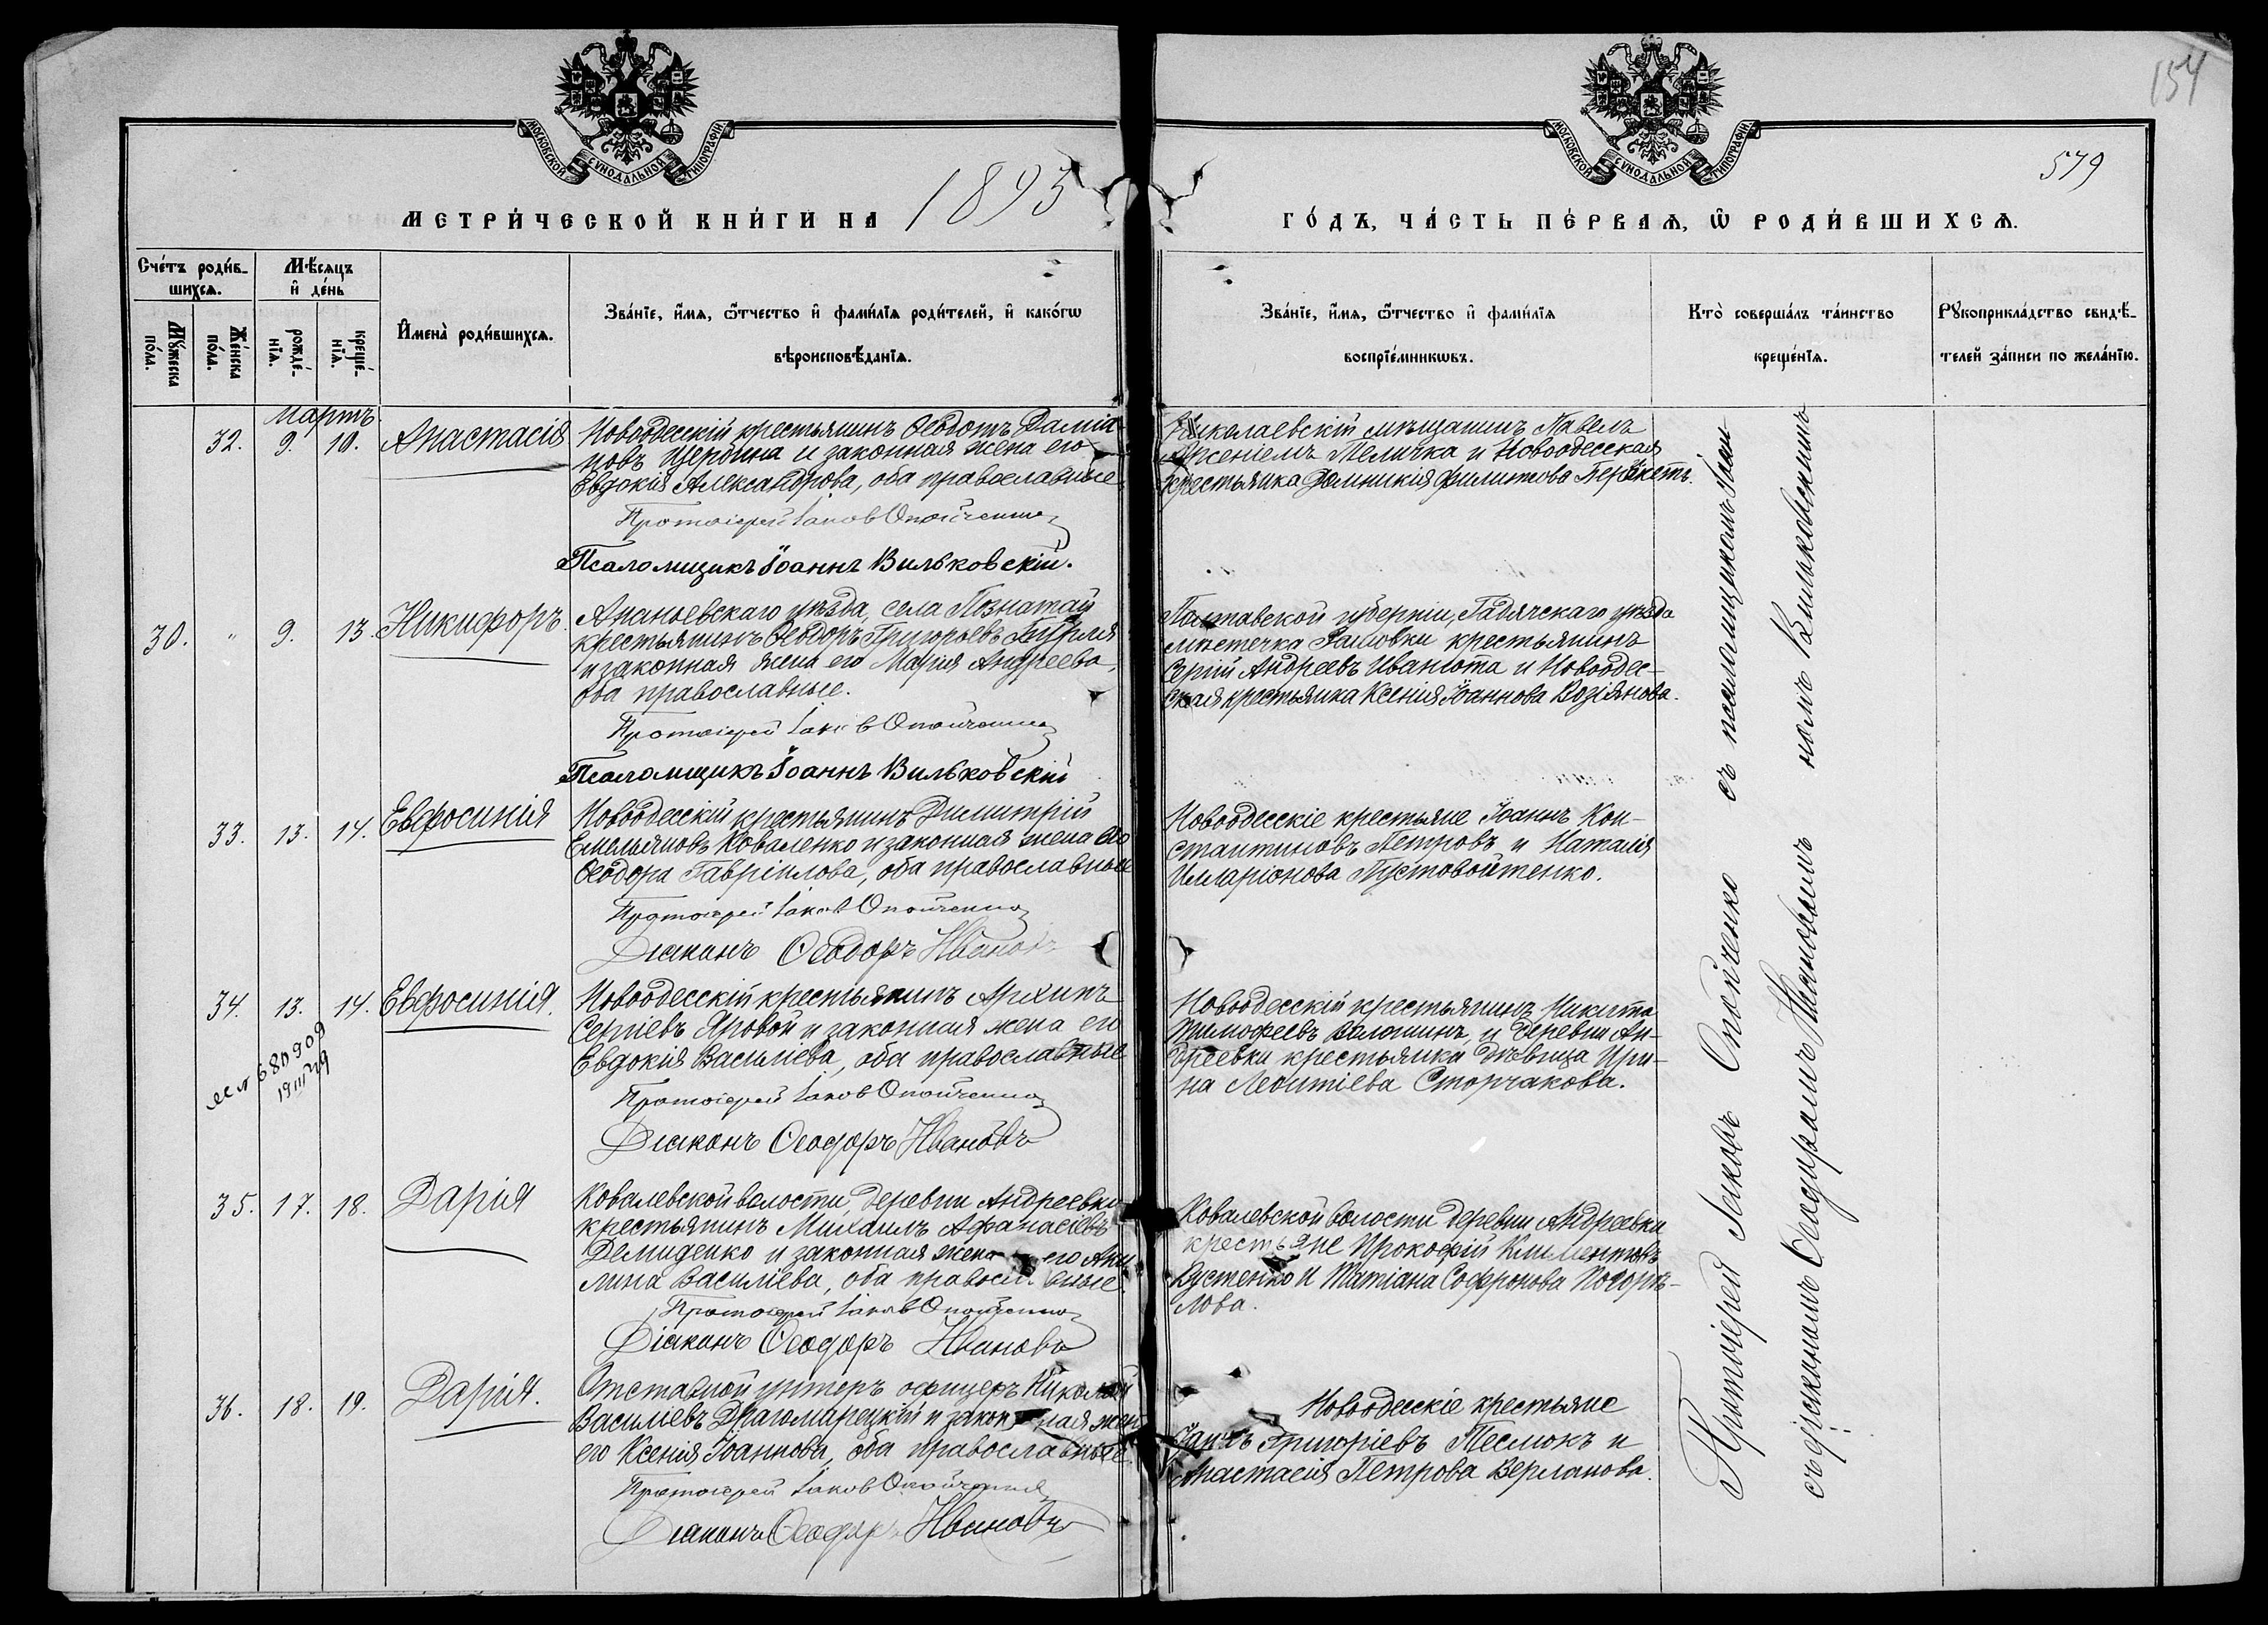 154
579
МОСКОВСКОЙ СѴНОДАЛЬНОЙ ТИПОГРАФІИ
МОСКОВСКОЙ СѴНОДАЛЬНОЙ ТИПОГРАФІИ
МЕТРИ́ЧЕСКОЙ КНИ́ГИ НА 1893
ГО́ДЪ, ЧА́СТЬ ПЕ́РВАѦ, Ѽ РОДИ́ВШИХСѦ.
Сче́тъ роди́в-
шихсѧ.
Мѣ́сяцъ
и҆ де́нь
Мꙋ́жеска по́ла.
Же́нска по́ла.
рожде́-
нїѧ.
креще́-
нїѧ.
И҆мена̀ роди́вшихсѧ.
Зва́нїе, и҆́мѧ, ѻ҆́тчество и҆ фамѝлїѧ роди́телей, и҆ како́гѡ
вѣроисповѣ́данїѧ.
Зва́нїе, и҆́мѧ, ѻ҆́тчество и҆ фами́лїѧ
воспрїе́мникѡвъ.
Кто̀ соверша́лъ та́инство
креще́нїѧ.
Рꙋкоприкла́дство свидѣ́-
телей за́писи по жела́нїю.
Мартъ
32. 9. 10. Анастасія
Новоодесскій крестьянинъ Ѳеодотъ Даміа-
новъ Щербина и законная жена его
Евдокія Александрова, оба православные
Протоіерей Іаковъ Опойченко
Псаломщикъ Іоаннъ Вильковскій.
Николаевскій мѣщанинъ Павелъ
Арсеніевъ Теличка и Новоодесская
крестьянка Домникія Филиппова
30. " 9. 13. Никифоръ.
Ананьевскаго уѣзда, села Познатай
крестьянинъ Ѳеодоръ Григорьевъ
и законная жена его Марія Андреева,
оба православные.
Протоіерей Іаковъ Опойченко
Псаломщикъ Іоаннъ Вильковскій
Полтавской губерніи, Гадячскаго уѣзда
мѣстечка Рашовки крестьянинъ
Сергій Андреевъ Иванюта и Новоодес-
ская крестьянка Ксенія Іоаннова Козіянова.
33. 13. 14. Евфросинія
Новоодесскій крестьянинъ Димитрій
Емельяновъ Коваленко и законная жена его
Ѳеодора Гавріилова, оба православные
Протоіерей Іаковъ Опойченко
Діаконъ Ѳеодоръ Ивановъ
Новоодесскіе крестьяне Іоаннъ Кон-
стантиновъ Петровъ и Наталія
Илларіонова Пустовойтенко.
34. 13. 14. Евфросинія.
680909
Новоодесскій крестьянинъ Архипъ
Сергіевъ Яровой и законная жена его
Евдокія Василіева, оба православные
Протоіерей Іаковъ Опойченко
Діаконъ Ѳеодоръ Ивановъ
Новоодесскій крестьянинъ Никита
Тимофеевъ Волошинъ, и деревни Ан-
дреевки крестьянка дѣвица Ири-
на Леонтіева Сторчакова.
35. 17. 18. Дарія
Ковалевской волости, деревни Андреевки
крестьянинъ Михаилъ Афанасіевъ
Демиденко и законная жена его Аки-
лина Василіева, оба православные.
Протоіерей Іаковъ Опойченко
Діаконъ Ѳеодоръ Ивановъ
Ковалевской волости деревни Андреевки
крестьяне Прокофій Климентовъ
Кустенко и Татіана Софронова Погорѣ-
лова.
36. 18. 19. Дарія.
Отставной унтеръ офицеръ Николай
Василіевъ Драгомирецкій и законная жена
его Ксенія Іоаннова, оба православные.
Протоіерей Іаковъ Опойченко
Діаконъ Ѳеодоръ Ивановъ
Новоодесскіе крестьяне
Іоаннъ Григоріевъ Теслюкъ и
Анастасія Петрова Верланова.
Протоіерей Іаковъ Опойченко съ псаломщикомъ Іоан-
съ діакономъ Ѳеодоромъ Ивановымъ номъ Вильковскимъ